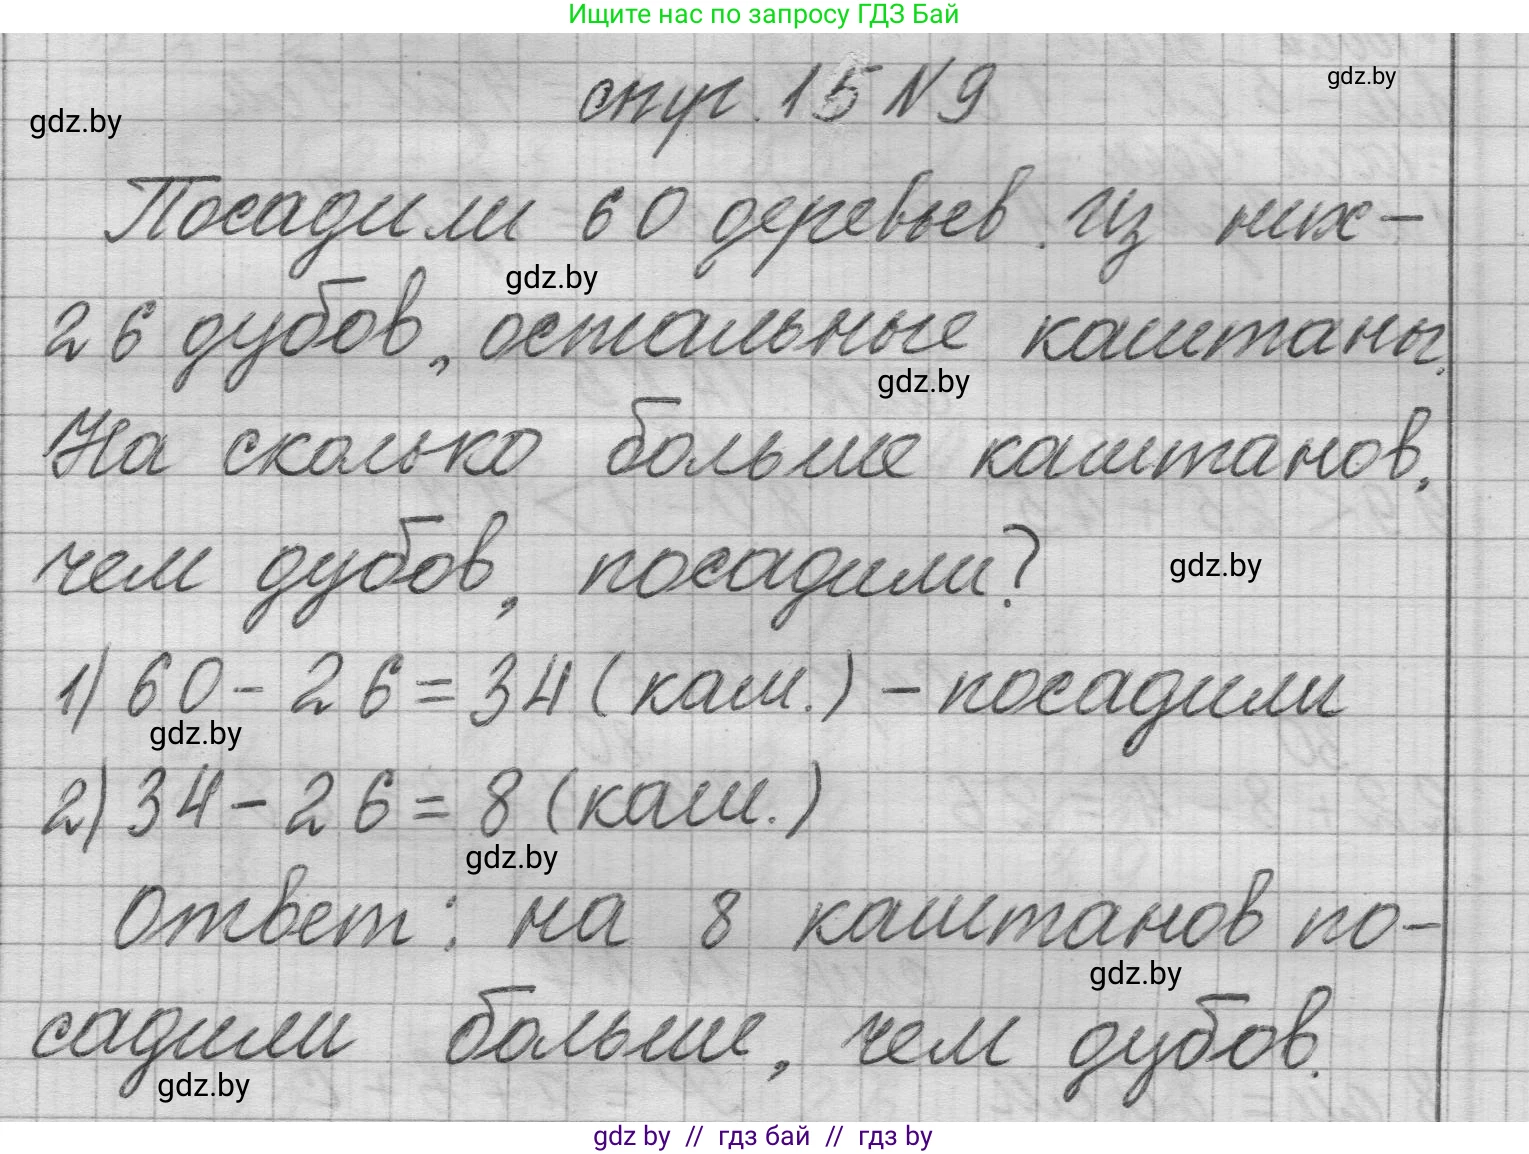 Ищите нас по запросу ГДЗ Бай
gdz.by
стр. 15 N 9
gdz.by
Посадили 60 деревьев. Из них -
gdz.by
26 дубов, остальные каштаны.
gdz.by
На сколько больше каштанов,
чем дубов, посадили?
gdz.by
1) 60 - 26 = 34 (каш.) - посадили
gdz.by
2) 34 - 26 = 8 (каш.)
gdz.by
Ответ: на 8 каштанов по-
gdz.by
садили больше, чем дубов.
gdz.by
gdz by // гдз бай // гдз by